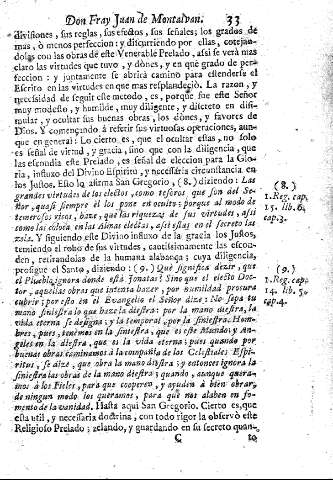 Don Fray Juan de Montalvan. 33
divisiones, sus reglas, sus efectos, sus señales; los grados de
mas, ò menos perfeccion: y discurriendo por ellas, cotejan-
dolas con las obras dè este Venerable Prelado, assi se verà mas
claro las virtudes que tuvo, y dònes, y en què grado de per-
feccion: y juntamente se abrirà camino para estenderse el
Escrito en las virtudes en que mas resplandeciò. La razon, y
necessidad de seguir este metodo, es, porque fue este Señor
muy modesto, y humilde, muy diligente, y discreto en dissi-
mular, y ocultar sus buenas obras, los dònes, y favores de
Dios. Y començando à referir sus virtuosas operaciones, aun-
que en general: Lo cierto es, que el ocultar estas, no solo
es señal de virtud, y gracia, sino que con la diligencia, que
las escondia este Prelado, es señal de eleccion para la Glo-
ria, influxo del Divino Espiritu, y necessaria circunstancia en
los Justos. Esto lo afirma San Gregorio, (8.) diziendo: Las
grandes virtudes de los electos, como tesoros que son del Se-
ñor, quasi siempre èl los pone en oculto; porque al modo de
temerosos ricos, haze, que las riquezas de sus virtudes, assi
como las cibòla en las Almas electas, assi estas en el secreto las
zela. Y siguiendo este Divino influxo de la gracia los Justos,
temiendo el robo de sus virtudes, cautissimamente las escon-
den, retirandolas de la humana alabança; cuya diligencia,
prosigue el Santo, diziendo: (9.) Què significa dezir, que
el Pueblo ignora donde està Jonatàs? Sino que el electo Doc-
tor, aquellas obras que intenta hazer, por humildad procura
cubrir; por esto en el Evangelio el Señor dize: No sepa tu
mano siniestra lo que haze la diestra: por la mano diestra, la
vida eterna se designa; y la temporal, por la siniestra. Hom-
bres, pues, tenemos en la siniestra, que es este Mundo; y An-
geles en la diestra, que es la vida eterna; pues quando por
buenas obras caminamos à la compañia de los Celestiales Espi-
ritus, se dize, que obra la mano diestra; y entonces ignora la
siniestra las obras de la mano diestra; quando, aunque quera-
mos à los Fieles, para que cooperen, y ayuden à bien obrar,
de ningun modo los queramos, para que nos alaben en fo-
mento de la vanidad. Hasta aqui San Gregorio. Cierto es, que
esta util, y necessaria doctrina, con todo rigor la observò este
Religioso Prelado; zelando, y guardando en su secreto quan-
C to
(8.)
1. Reg. cap.
15. lib. 6.
cap. 3.
(9.)
1. Reg. cap.
14. lib. 5.
cap. 4.